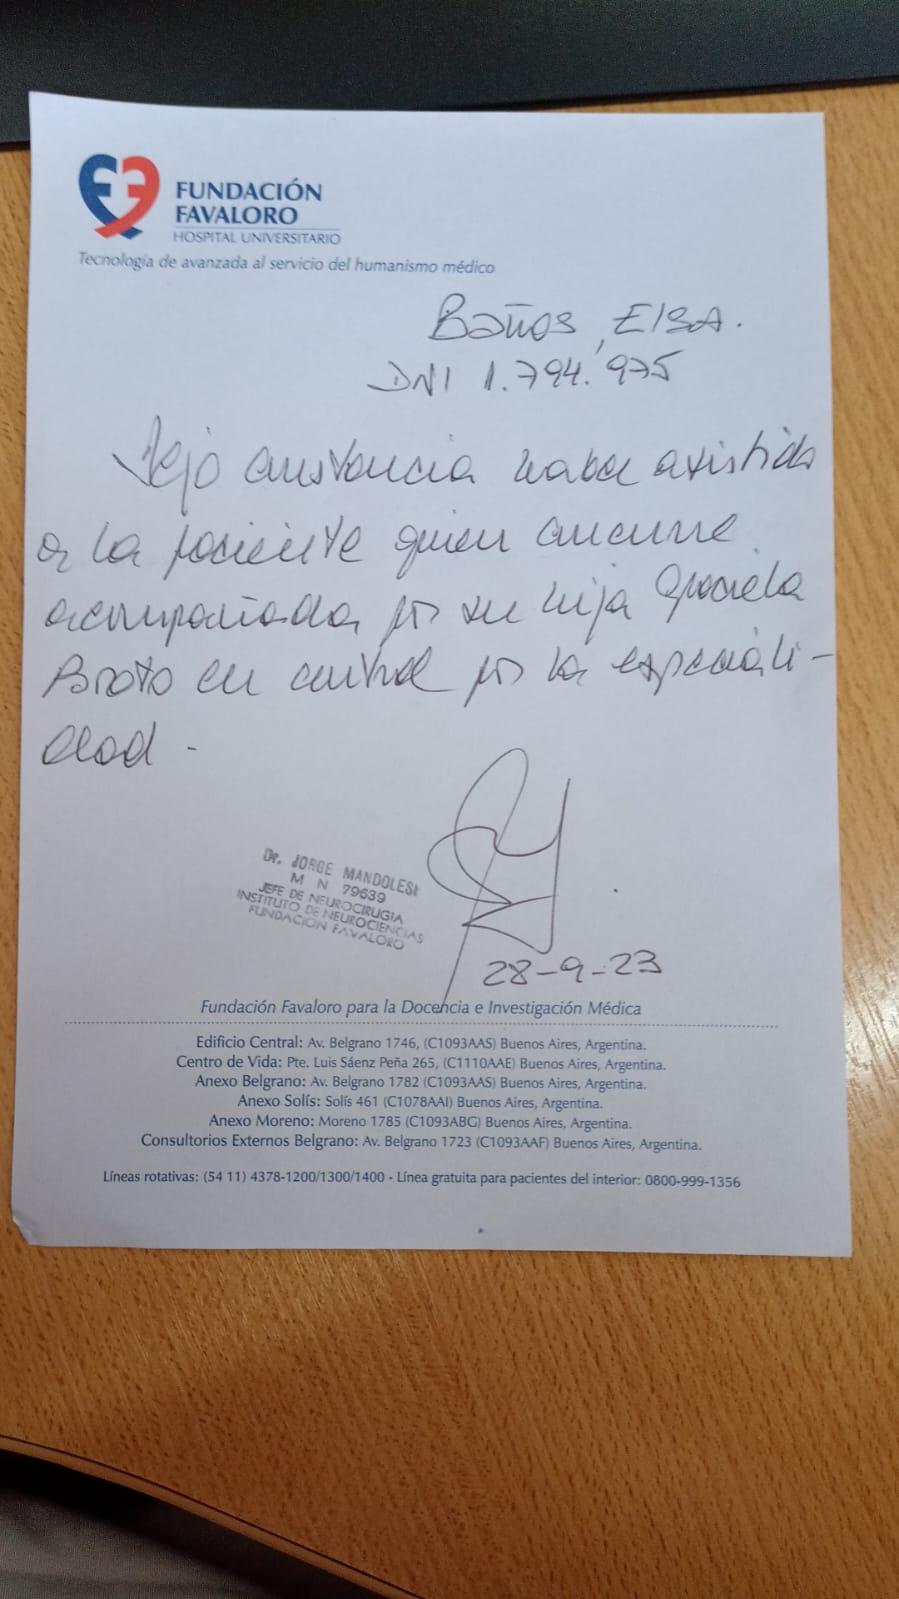 FUNDACIÓN
FAVALORO
HOSPITAL UNIVERSITARIO
Tecnología de avanzada al servicio del humanismo médico
Baños, Elsa.
DNI 1.794.975
Dejo constancia haber asistido
a la paciente quien concurre
acompañada por su hija Graciela
en control por la especiali-
dad -
Dr. JORGE MANDOLESI
M N 79639
JEFE DE NEUROCIRUGIA
INSTITUTO DE NEUROCIENCIAS
FUNDACION FAVALORO
28-9-23
Fundación Favaloro para la Docencia e Investigación Médica
Edificio Central: Av. Belgrano 1746, (C1093AAS) Buenos Aires, Argentina.
Centro de Vida: Pte. Luis Sáenz Peña 265, (C1110AAE) Buenos Aires, Argentina.
Anexo Belgrano: Av. Belgrano 1782 (C1093AAS) Buenos Aires, Argentina.
Anexo Solís: Solís 461 (C1078AAI) Buenos Aires, Argentina.
Anexo Moreno: Moreno 1785 (C1093ABG) Buenos Aires, Argentina.
Consultorios Externos Belgrano: Av. Belgrano 1723 (C1093AAF) Buenos Aires, Argentina.
Líneas rotativas: (54 11) 4378-1200/1300/1400 - Línea gratuita para pacientes del interior: 0800-999-1356